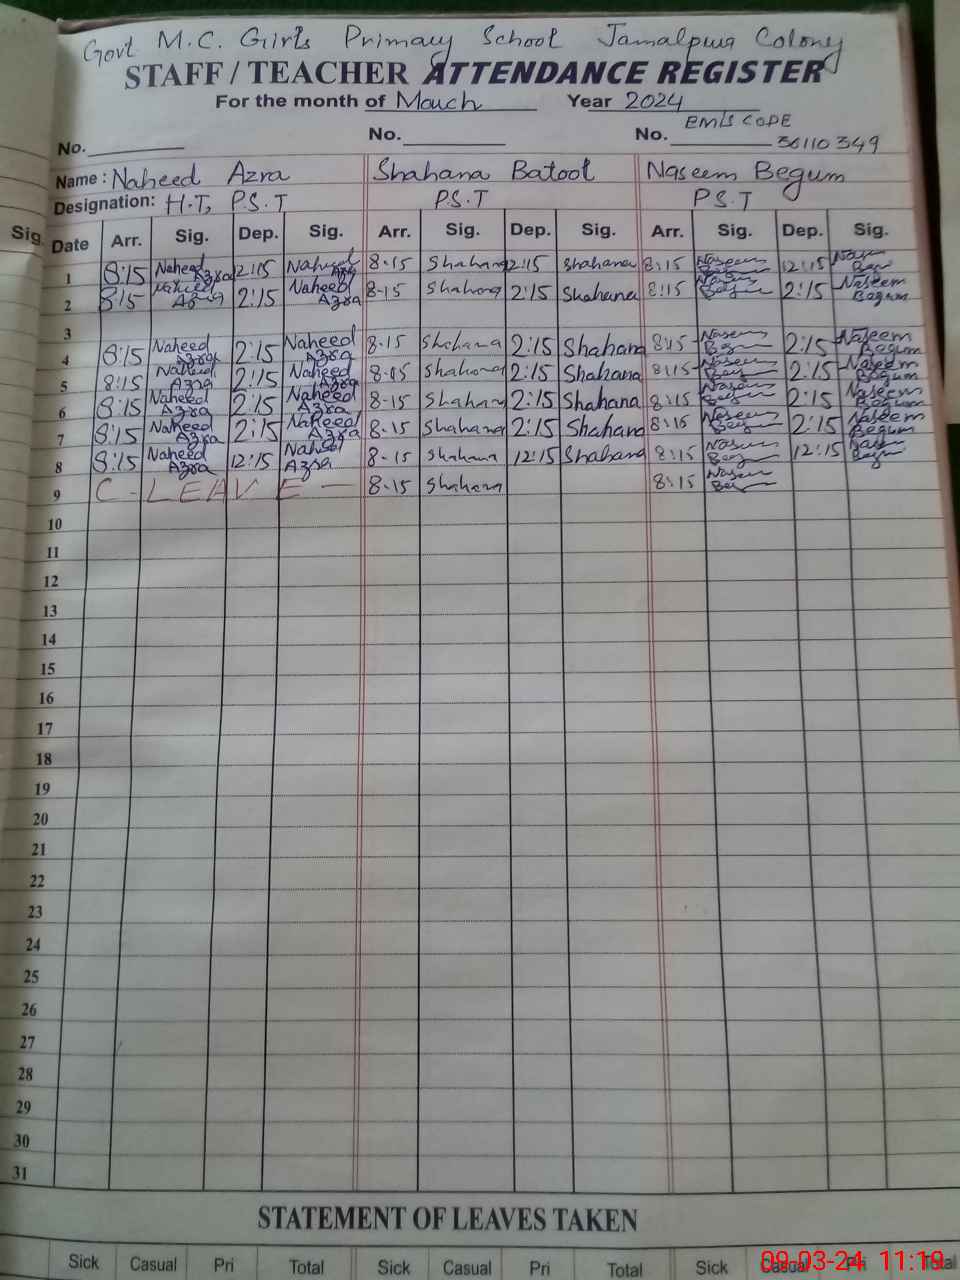 Govt M.C. Girls Primary School Jamalpura Colony
STAFF / TEACHER ATTENDANCE REGISTER
For the month of March Year 2024
EMIS CODE
No. No. No. 36110349
Name : Naheed Azra Shahana Batool Naseem Begum
Designation: H.T, P.S.T P.S.T P.S.T
Sig.
Date Arr. Sig. Dep. Sig. Arr. Sig. Dep. Sig. Arr. Sig. Dep. Sig.
1 8:15 Naheed Azra 12:15 Naheed Azra 8-15 Shahana 12:15 Shahana 8:15 Naseem Begum 12:15 Naseem Begum
2 8:15 Naheed Azra 2:15 Naheed Azra 8-15 Shahana 2:15 Shahana 8:15 Naseem Begum 2:15 Naseem Begum
3
4 8:15 Naheed Azra 2:15 Naheed Azra 8-15 Shahana 2:15 Shahana 8:15 Naseem Begum 2:15 Naseem Begum
5 8:15 Naheed Azra 2:15 Naheed Azra 8-15 Shahana 2:15 Shahana 8:15 Naseem Begum 2:15 Naseem Begum
6 8:15 Naheed Azra 2:15 Naheed Azra 8-15 Shahana 2:15 Shahana 8:15 Naseem Begum 2:15 Naseem Begum
7 8:15 Naheed Azra 2:15 Naheed Azra 8-15 Shahana 2:15 Shahana 8:15 Naseem Begum 2:15 Naseem Begum
8 8:15 Naheed Azra 12:15 Naheed Azra 8-15 Shahana 12:15 Shahana 8:15 Naseem Begum 12:15 Naseem Begum
9 C-LEAVE- 8-15 Shahana 8:15 Naseem Begum
10
11
12
13
14
15
16
17
18
19
20
21
22
23
24
25
26
27
28
29
30
31
STATEMENT OF LEAVES TAKEN
Sick Casual Pri Total Sick Casual Pri Total Sick Casual Pri Total
09-03-24 11:19